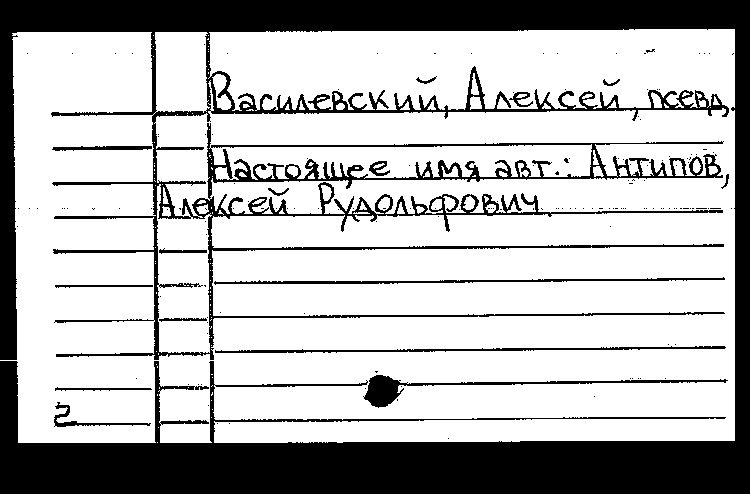 Василевский, Алексей, псевд.
Настоящее имя авт.: Антипов,
Алексей Рудольфович.
2